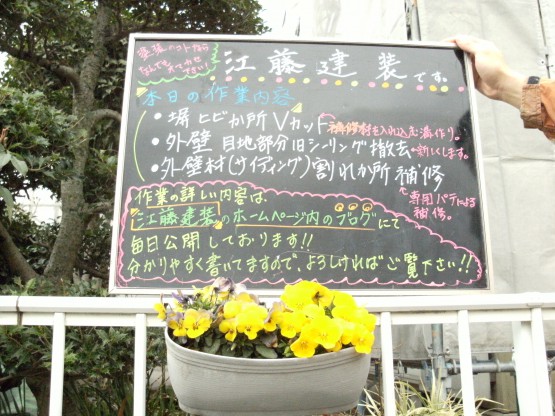 塗装のコトなら
なんでもきいて下さい!
江藤建装です。
本日の作業内容
・塀 ヒビか所 Vカット 補修材を入れ込む溝作り。
・外壁 目地部分旧シーリング撤去 新しくします。
・外壁材(サイディング)割れか所 補修
専用パテによる
補修。
作業の詳しい内容は、
江藤建装のホームページ内のブログにて
毎日公開しております!!
分かりやすく書いてますので、よろしければご覧下さい!!